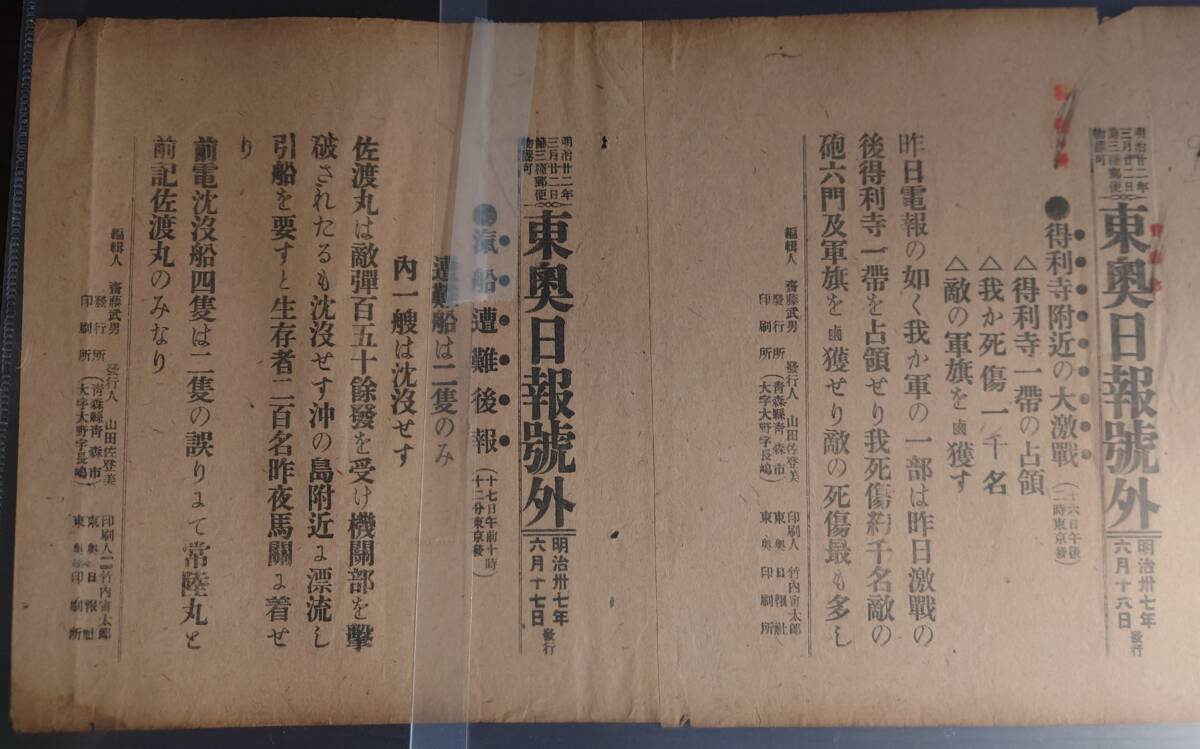 明治廿二年
三月廿二日
第三種郵便
物認可
東奥日報號外
明治卅七年
六月十六日
發行
●得利寺附近の大激戰
(十六日午後
二時東京發)
△得利寺一帶の占領
△我か死傷一千名
△敵の軍旗を鹵獲す
昨日電報の如く我か軍の一部は昨日激戰の
後得利寺一帶を占領せり我死傷約千名敵の
砲六門及軍旗を鹵獲せり敵の死傷最も多し
編輯人 齋藤武男 發行人 山田佐登美 印刷人 竹内宙太郎
發行所 (青森縣青森市 東奥日報社
印刷所 大字大野字長嶋) 東奥印刷所
明治廿二年
三月廿二日
第三種郵便
物認可
東奥日報號外
明治卅七年
六月十七日
發行
●汽船遭難後報
(十七日午前十時
十二分東京發)
遭難船は二隻のみ
内一艘は沈没せす
佐渡丸は敵彈百五十餘發を受け機關部を擊
破されたるも沈没せす沖の島附近に漂流し
引船を要すと生存者二百名昨夜馬關に着せ
り
前電沈没船四隻は二隻の誤りにて常陸丸と
前記佐渡丸のみなり
編輯人 齋藤武男 發行人 山田佐登美 印刷人 竹内宙太郎
發行所 (青森縣青森市 東奥日報社
印刷所 大字大野字長嶋) 東奥印刷所